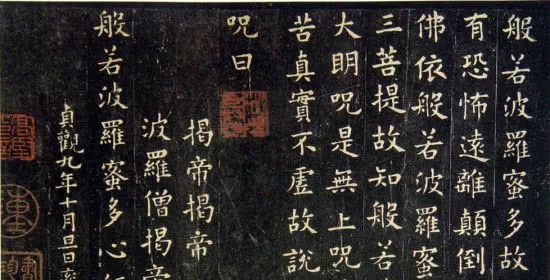 般若波羅蜜多故
有恐怖遠離顛倒
佛依般若波羅蜜
三菩提故知般若
大明呪是無上呪
苦真實不虛故說
呪曰
揭帝揭帝
波羅僧揭帝
般若波羅蜜多心
貞觀九年十月旦日率